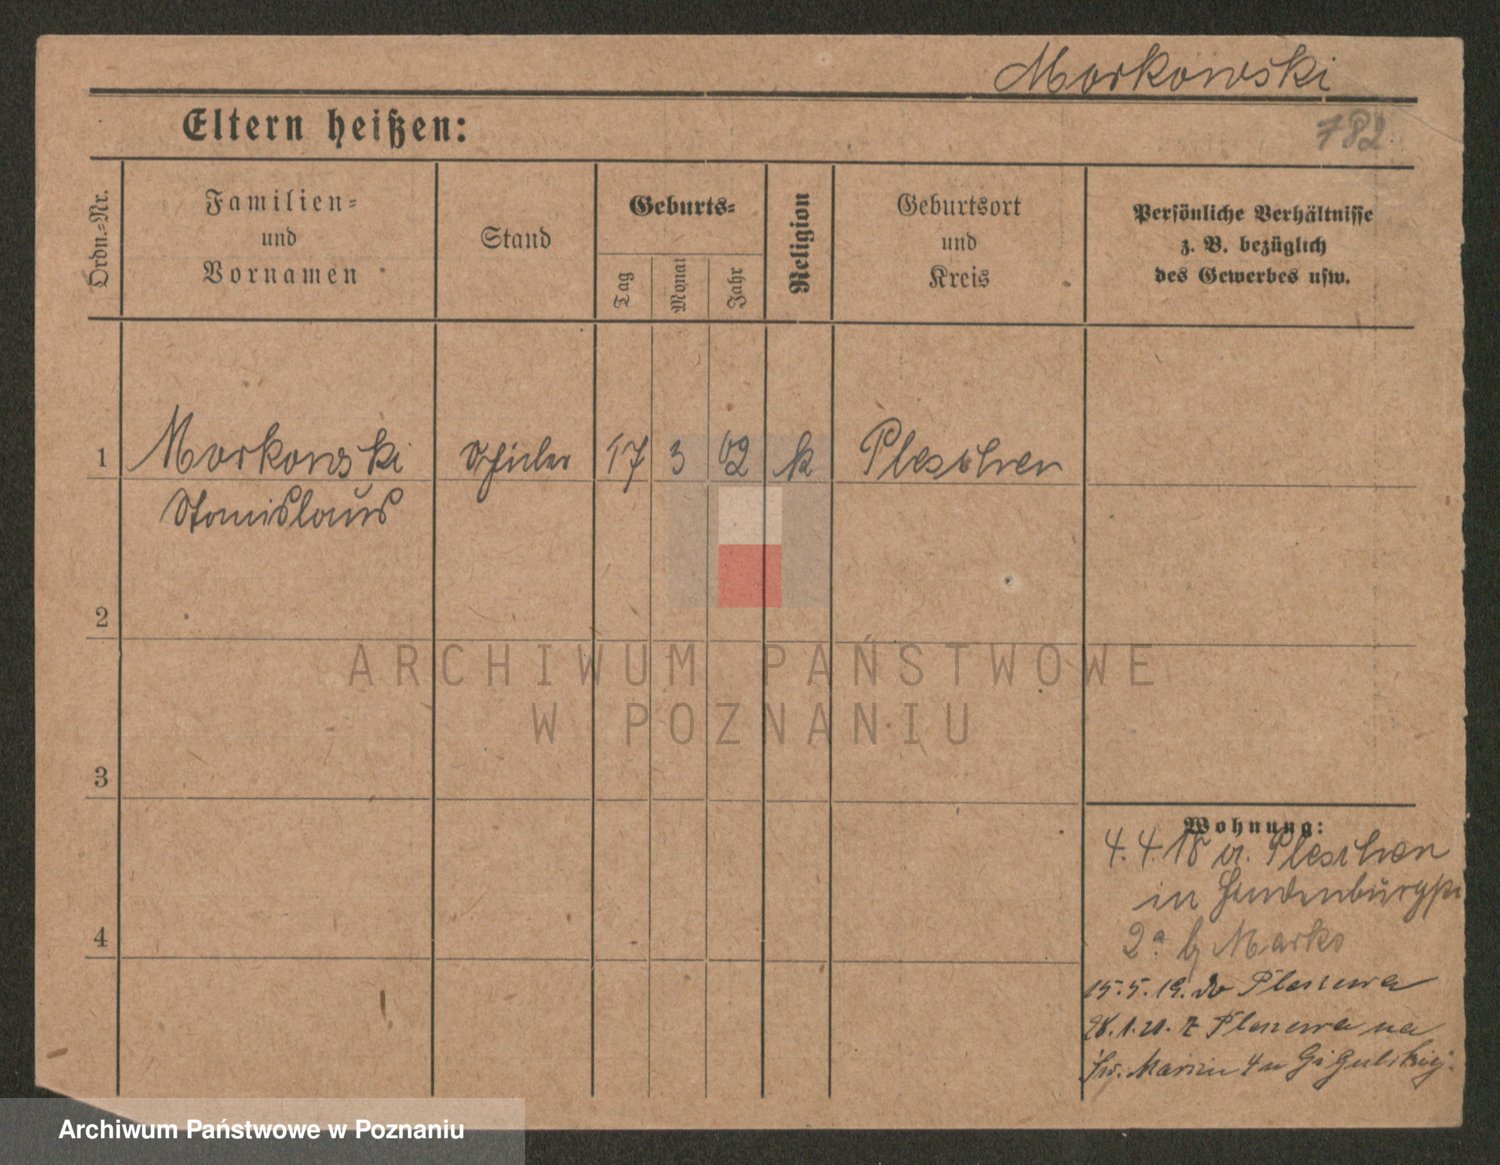 Markowski
Eltern heißen:
782
Ordn.-Nr.
Familien-
und
Vornamen
Stand
Geburts-
Tag
Monat
Jahr
Religion
Geburtsort
und
Kreis
Persönliche Verhältnisse
z. B. bezüglich
des Gewerbes usw.
1 Markowski Schüler 17 3 02 k Pleschen
Stanislaus
2
3
4
Wohnung:
4. 4. 18 v. Pleschen
in
2a b Marko
15.5.19. do Pleszewa
28.1.20. z Pleszewa na
Św. Marcin 4 u
ARCHIWUM PAŃSTWOWE
W POZNANIU
Archiwum Państwowe w Poznaniu